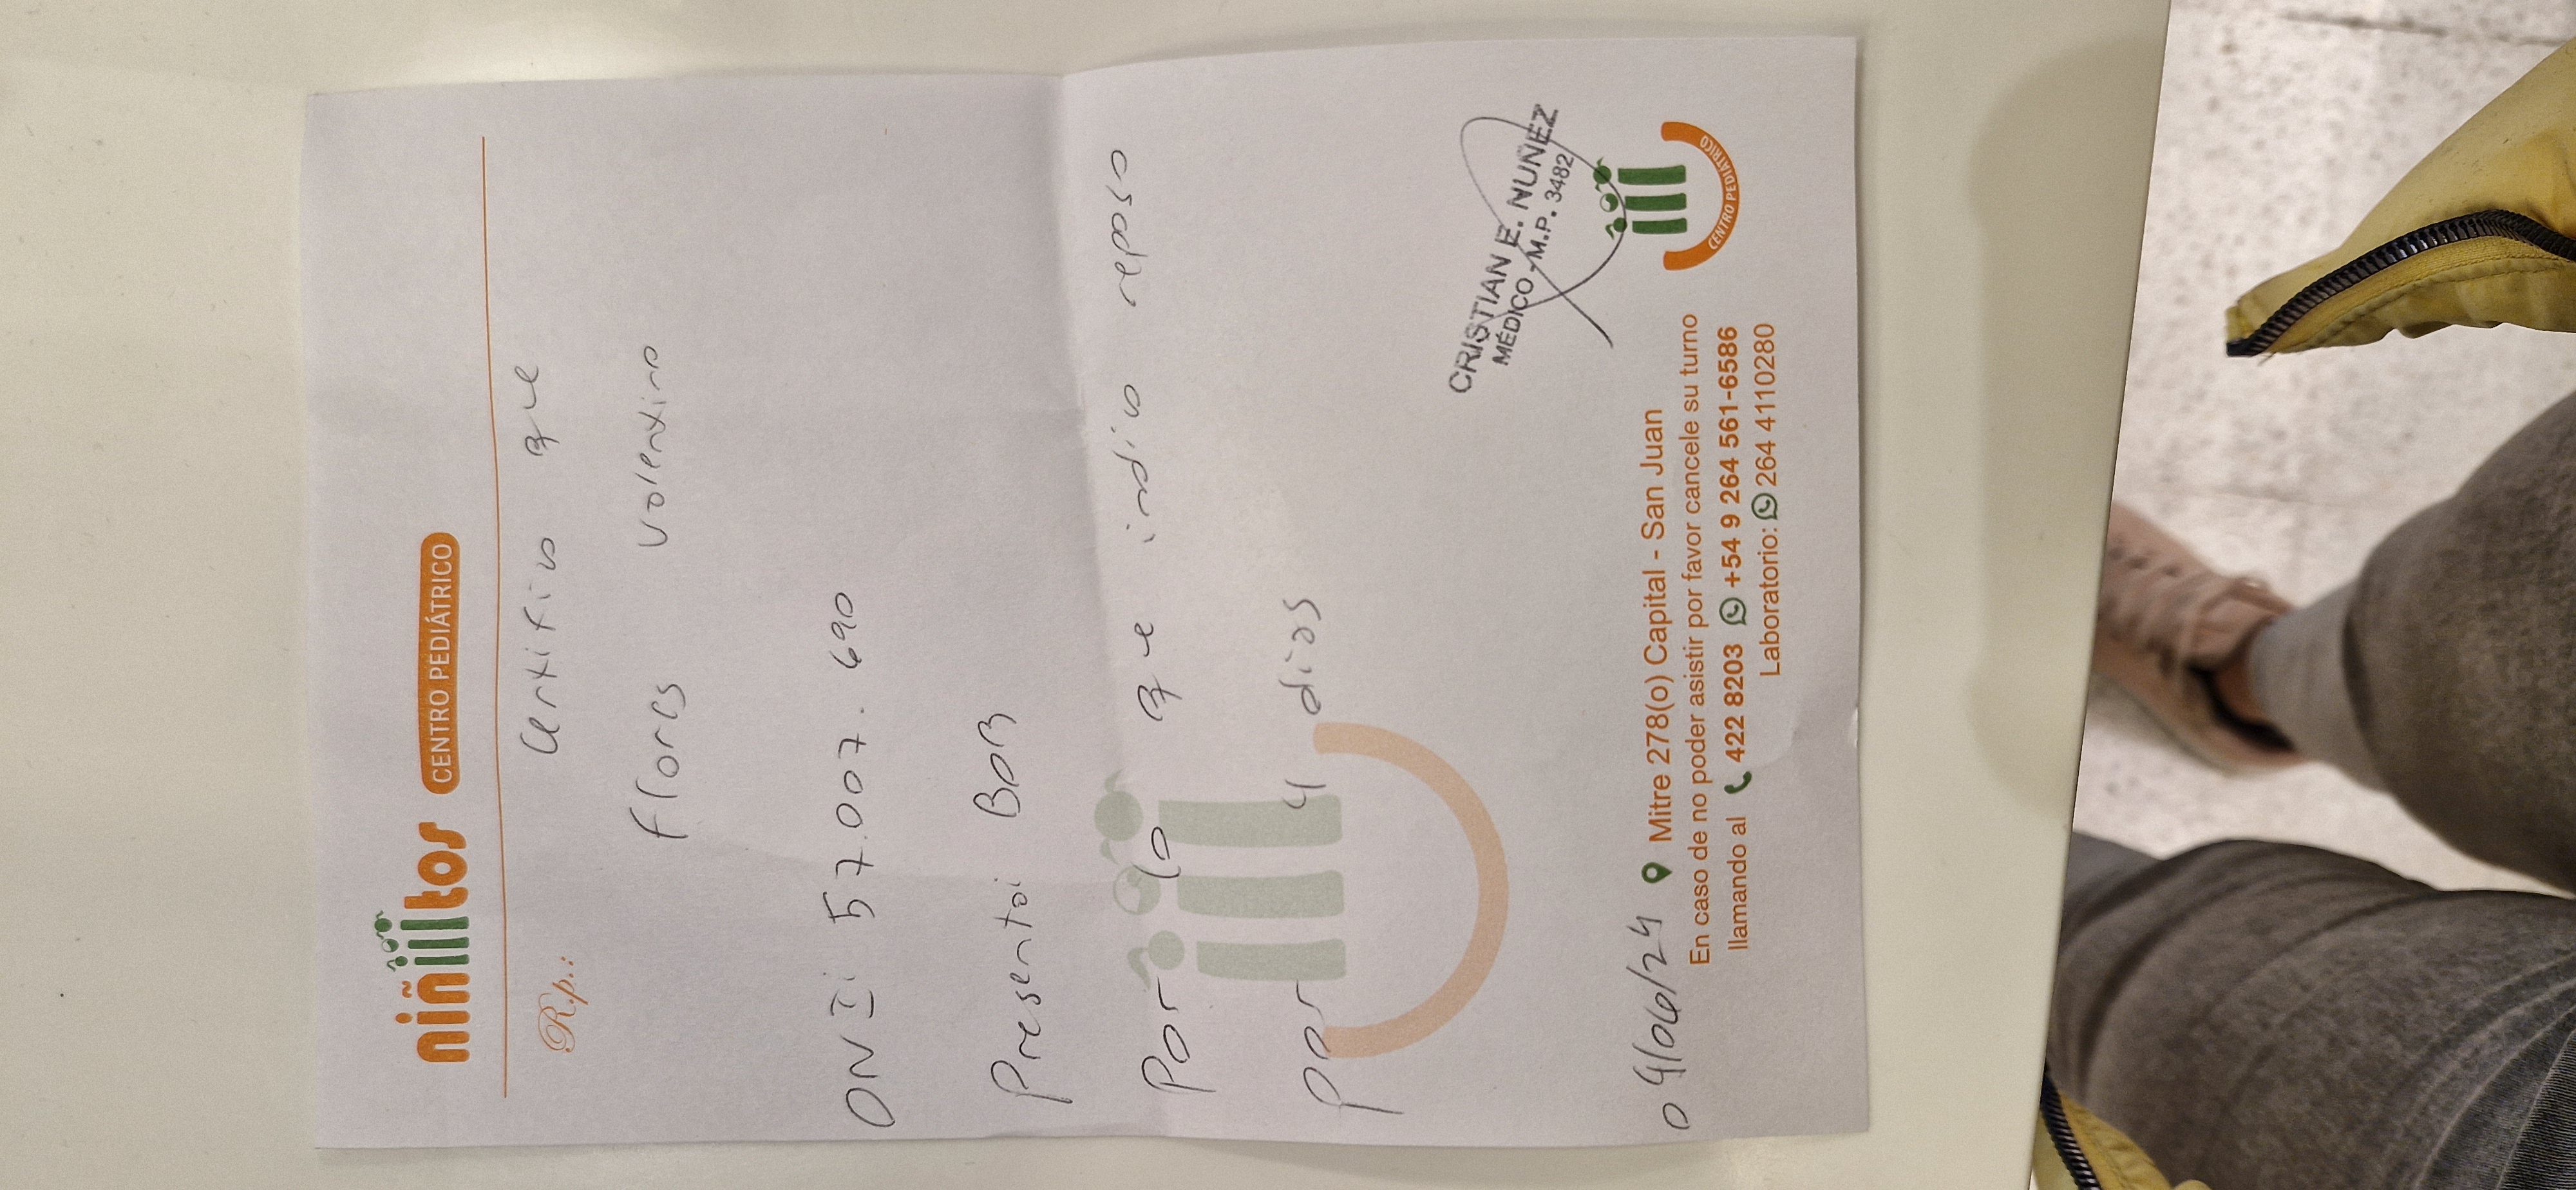 niñiitos CENTRO PEDIÁTRICO
R.p.:
Certifico que
Flores Valentino
DNI: 57.007.690
Presentoi BOR
Por lo que indico reposo
por 4 dias
CRISTIAN E. NUÑEZ
MÉDICO - M.P. 3482
04/06/24
Mitre 278(o) Capital - San Juan
En caso de no poder asistir por favor cancele su turno
llamando al 422 8203 +54 9 264 561-6586
Laboratorio: 264 4110280
CENTRO PEDIÁTRICO